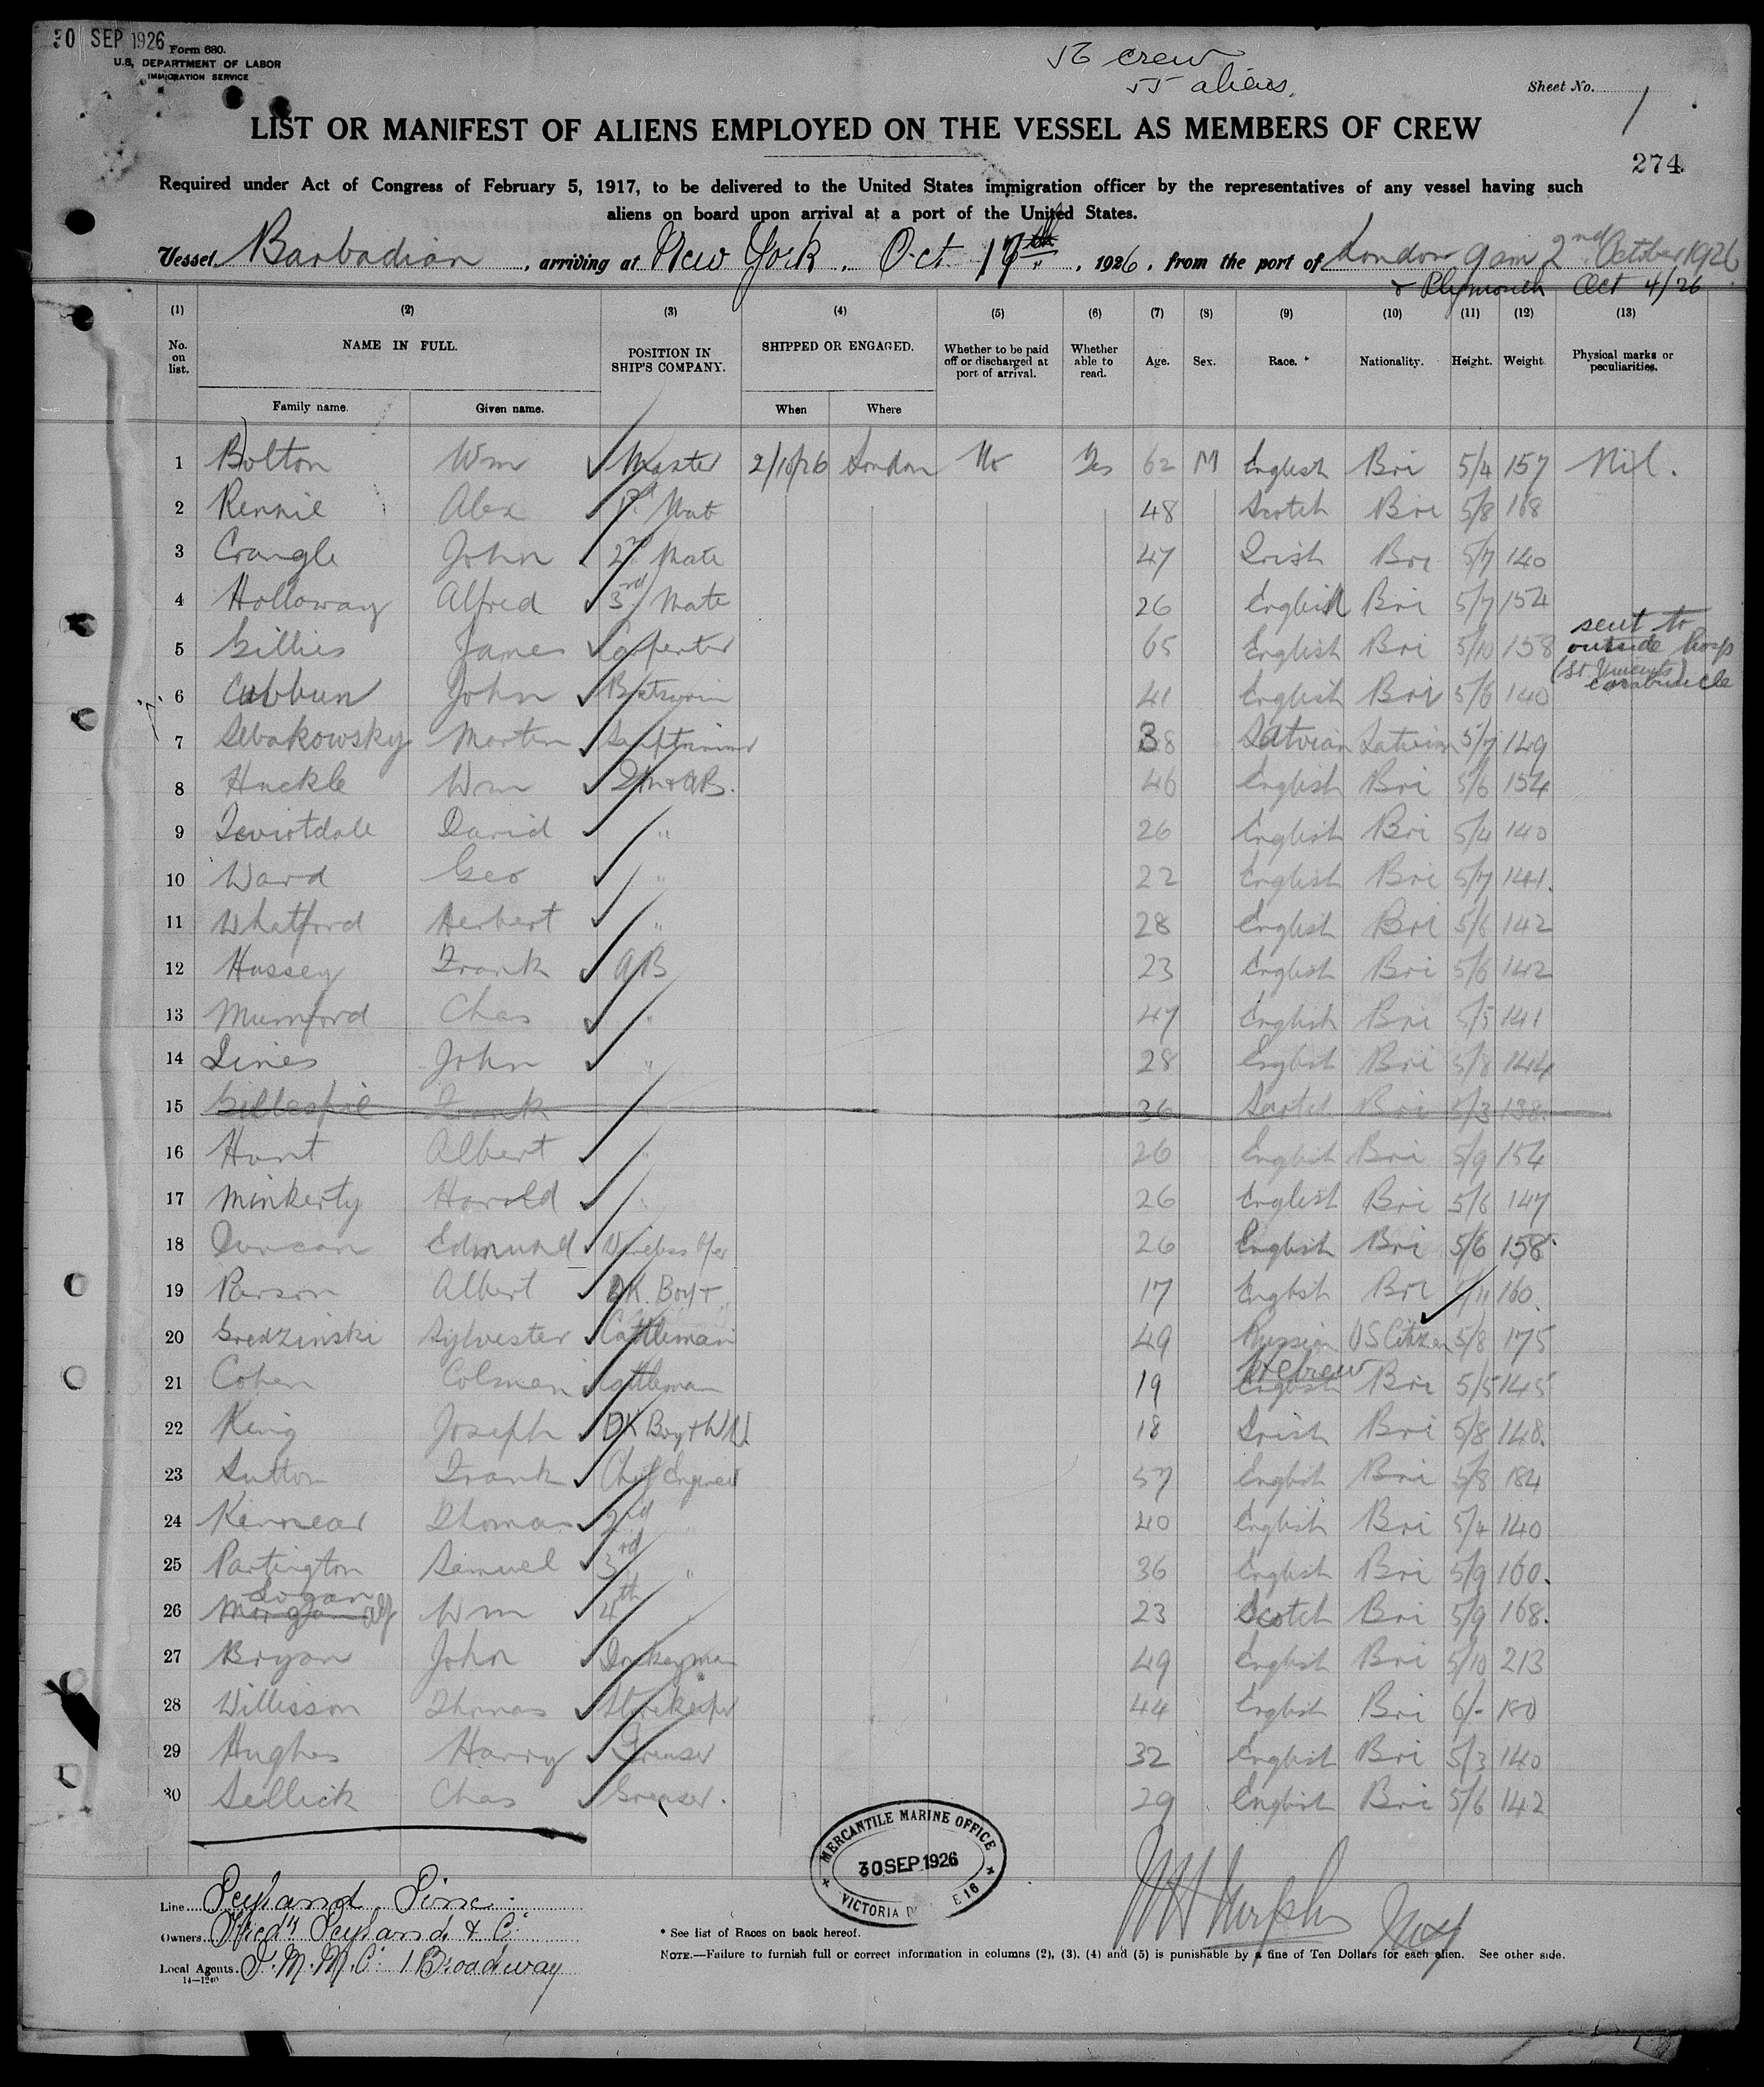 30 SEP 1926
Form 680.
U.S. DEPARTMENT OF LABOR
IMMIGRATION SERVICE
56 crew
55 aliens.
Sheet No. 1
LIST OR MANIFEST OF ALIENS EMPLOYED ON THE VESSEL AS MEMBERS OF CREW
274
Required under Act of Congress of February 5, 1917, to be delivered to the United States immigration officer by the representatives of any vessel having such
aliens on board upon arrival at a port of the United States.
Vessel Barbadian, arriving at New York, Oct. 17th, 1926, from the port of London 9 am 2nd October 1926
& Plymouth Oct 4/26
(1) (2) (3) (4) (5) (6) (7) (8) (9) (10) (11) (12) (13)
No. on list. NAME IN FULL. POSITION IN SHIP'S COMPANY. SHIPPED OR ENGAGED. Whether to be paid off or discharged at port of arrival. Whether able to read. Age. Sex. Race.* Nationality. Height. Weight. Physical marks or peculiarities.
Family name. Given name. When Where
1 Bolton Wm Master 2/10/26 London No Yes 62 M English Bri 5/4 157 Nil.
2 Rennie Alex 1st Mate 48 Scotch Bri 5/8 168
3 Crangle John 2nd Mate 47 Irish Bri 5/7 140
4 Holloway Alfred 3rd Mate 26 English Bri 5/7 154
5 Gillies James Carpenter 65 English Bri 5/10 158 sent to outside hosp (St Vincents) carbuncle
6 Cubbun John Boatswain 41 English Bri 5/6 140
7 Sebakowsky Morten Lamptrimmer 38 Latvian Latvian 5/7 149
8 Huckle Wm QM & AB. 46 English Bri 5/6 154
9 Teviotdale David " 26 English Bri 5/4 140
10 Ward Geo " 22 English Bri 5/7 141.
11 Whatford Herbert " 28 English Bri 5/6 142
12 Hussey Frank AB 23 English Bri 5/6 142
13 Mumford Chas " 47 English Bri 5/5 141
14 Lines John " 28 English Bri 5/8 144
15 Gillespie Frank 36 Scotch Bri 5/3 138.
16 Hunt Albert " 26 English Bri 5/9 154
17 Minkerty Harold " 26 English Bri 5/6 147
18 Duncan Edmund Wireless Oper 26 English Bri 5/6 158
19 Parson Albert DK. Boy + " 17 English Bri 5/11 160.
20 Gredzinski Sylvester Cattleman 49 Russian US Citizen 5/8 175
21 Cohen Colman Cattleman 19 English Hebrew Bri 5/5 145
22 King Joseph DK Boy + 18 Irish Bri 5/8 148.
23 Sutton Frank Chief Engineer 57 English Bri 5/8 184
24 Kennear Thomas 2nd " 40 English Bri 5/4 140
25 Partington Samuel 3rd " 36 English Bri 5/9 160.
26 Morgan Logan Wm 4th " 23 Scotch Bri 5/9 168.
27 Bryan John Donkeyman 49 English Bri 5/10 213
28 Willisson Thomas Storekeeper 44 English Bri 6/- 180
29 Hughes Harry Greaser 32 English Bri 5/3 140
30 Sellick Chas Greaser. 29 English Bri 5/6 142
MERCANTILE MARINE OFFICE
30 SEP 1926
VICTORIA D E 16
Line Leyland Line
Owners Fredk Leyland & Co
Local Agents I. M. M. Co 1 Broadway
14—1240
* See list of Races on back hereof.
NOTE.—Failure to furnish full or correct information in columns (2), (3), (4) and (5) is punishable by a fine of Ten Dollars for each alien. See other side.